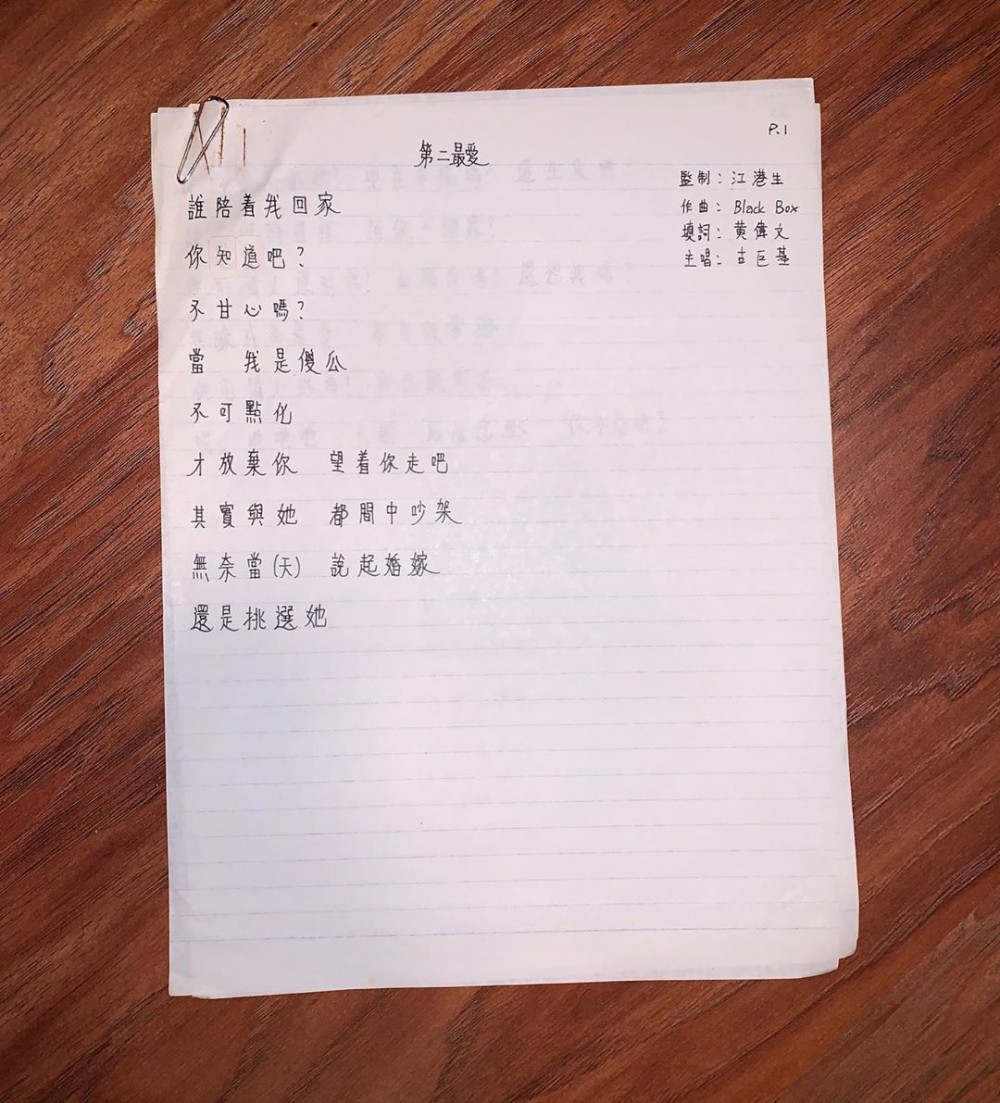 P.1
第二最愛
監制：江港生
作曲：Black Box
填詞：黃偉文
主唱：古巨基
誰陪着我回家
你知道吧？
不甘心嗎？
當　我是傻瓜
不可點化
才放棄你　望着你走吧
其實與她　都間中吵架
無奈當(天)　說起婚嫁
還是挑選她